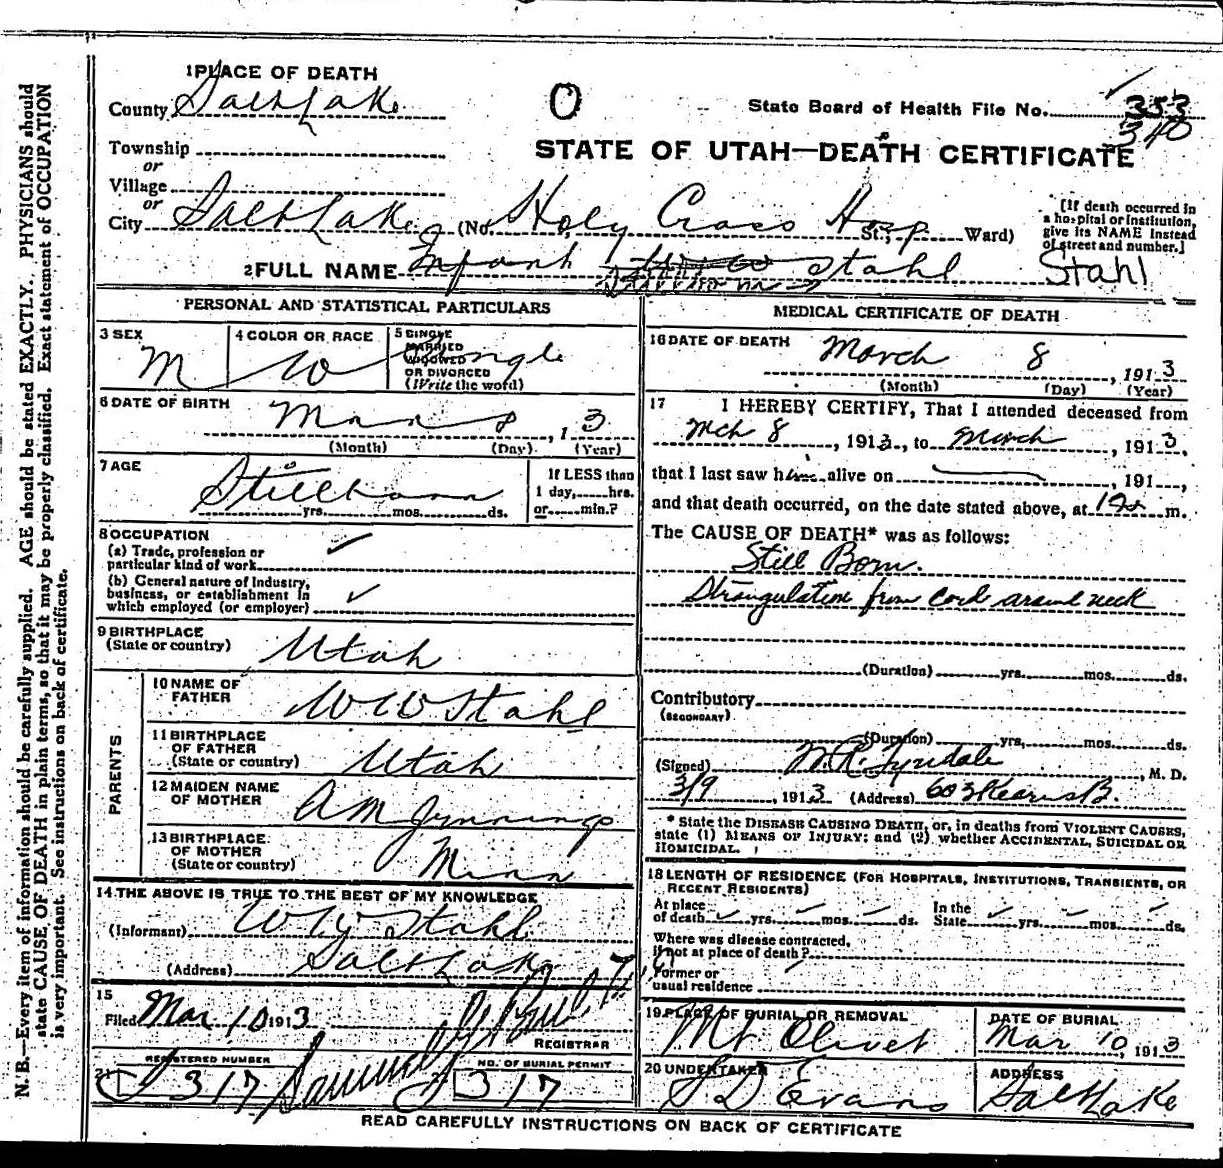 1 PLACE OF DEATH
County Salt Lake
State Board of Health File No. 353
310
O
STATE OF UTAH—DEATH CERTIFICATE
Township
or
Village
or
City Salt Lake (No. Holy Cross Hosp St.; Ward)
[If death occurred in a hospital or institution, give its NAME instead of street and number.]
2 FULL NAME Infant Stahl
Stahl
PERSONAL AND STATISTICAL PARTICULARS
3 SEX M
4 COLOR OR RACE W
5 SINGLE MARRIED WIDOWED OR DIVORCED (Write the word) Single
6 DATE OF BIRTH Mar 8, 1 3
(Month) (Day) (Year)
7 AGE Stillborn
yrs. mos. ds.
If LESS than 1 day, hrs. or min.?
8 OCCUPATION
(a) Trade, profession or particular kind of work
(b) General nature of Industry, business, or establishment in which employed (or employer)
9 BIRTHPLACE (State or country) Utah
PARENTS
10 NAME OF FATHER W W Stahl
11 BIRTHPLACE OF FATHER (State or country) Utah
12 MAIDEN NAME OF MOTHER A M Jennings
13 BIRTHPLACE OF MOTHER (State or country) Minn
14 THE ABOVE IS TRUE TO THE BEST OF MY KNOWLEDGE
(Informant) W W Stahl
(Address) Salt Lake
15
Filed Mar 10 1913
REGISTRAR
REGISTERED NUMBER
NO. OF BURIAL PERMIT
21 317 Samuel 317
MEDICAL CERTIFICATE OF DEATH
16 DATE OF DEATH March 8, 1913
(Month) (Day) (Year)
17 I HEREBY CERTIFY, That I attended deceased from
Mch 8, 1913, to March, 1913,
that I last saw him alive on, 191,
and that death occurred, on the date stated above, at m.
The CAUSE OF DEATH* was as follows:
Still Born.
Strangulation from cord around neck
(Duration) yrs. mos. ds.
Contributory
(SECONDARY)
(Duration) yrs. mos. ds.
(Signed) W. R. Tyndale, M. D.
3/9, 1913 (Address) 603 Kearns B.
* State the DISEASE CAUSING DEATH, or, in deaths from VIOLENT CAUSES, state (1) MEANS OF INJURY; and (2) whether ACCIDENTAL, SUICIDAL OR HOMICIDAL.
18 LENGTH OF RESIDENCE (FOR HOSPITALS, INSTITUTIONS, TRANSIENTS, OR RECENT RESIDENTS)
At place of death yrs. mos. ds. In the State yrs. mos. ds.
Where was disease contracted, if not at place of death?
Former or usual residence
19 PLACE OF BURIAL OR REMOVAL Mt. Olivet
DATE OF BURIAL Mar 10, 1913
20 UNDERTAKER S D Evans
ADDRESS Salt Lake
READ CAREFULLY INSTRUCTIONS ON BACK OF CERTIFICATE
N. B.—Every item of information should be carefully supplied. AGE should be stated EXACTLY. PHYSICIANS should
state CAUSE OF DEATH in plain terms, so that it may be properly classified. Exact statement of OCCUPATION
is very important. See instructions on back of certificate.